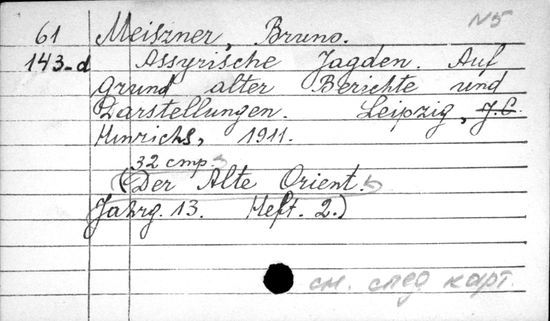 N5
61 Meiszner, Bruno.
143-d Assyrische Jagden. Auf
Grund alter Berichte und
Darstellungen. Leipzig, J.C.
Hinrichs, 1911.
32 стр.
(Der Alte Orient.
Jahrg. 13. Heft. 2.)
см. след карт.